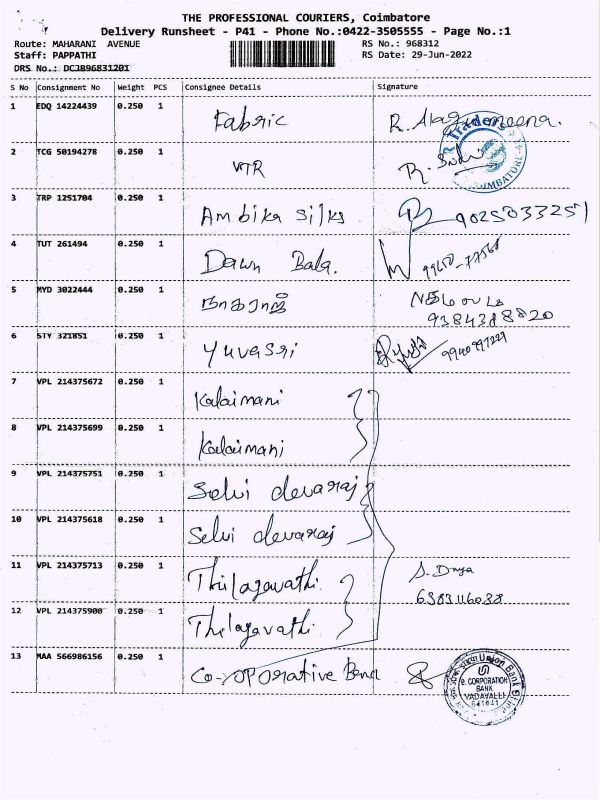 THE PROFESSIONAL COURIERS, Coimbatore
Delivery Runsheet - P41 - Phone No.:0422-3505555 - Page No.:1
Route: MAHARANI AVENUE RS No.: 968312
Staff: PAPPATHI RS Date: 29-Jun-2022
DRS No.: DCJB96831201
S No Consignment No Weight PCS Consignee Details Signature
1 EDQ 14224439 0.250 1 Fabric R.
Traders
COIMBATORE
2 TCG 50194278 0.250 1 VTR
3 TRP 1251704 0.250 1 Ambika Silks 9025033251
4 TUT 261494 0.250 1 Dawn Bala.
5 MYD 3022444 0.250 1 நாகராஜ்
9384388820
6 STY 321851 0.250 1 Yuvasri
7 VPL 214375672 0.250 1 Kalaimani
8 VPL 214375699 0.250 1 Kalaimani
9 VPL 214375751 0.250 1 Selvi devaraj
10 VPL 214375618 0.250 1 Selvi devaraj
11 VPL 214375713 0.250 1 Thilagavathi S. Divya
6383116038
12 VPL 214375900 0.250 1 Thilagavathi
13 MAA 566986156 0.250 1 Co-oporative Bank
Union Bank
e. CORPORATION
BANK
VADAVALLI
641041